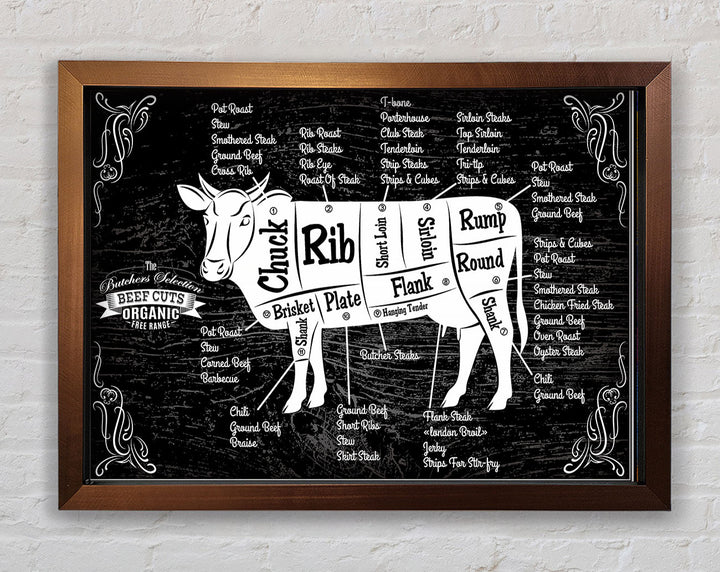 Pot Roast
Stew
Smothered Steak
Ground Beef
Cross Rib
Rib Roast
Rib Steaks
Rib Eye
Roast Of Steak
T-bone
Porterhouse
Club Steak
Tenderloin
Strip Steaks
Strips & Cubes
Sirloin Steaks
Top Sirloin
Tenderloin
Tri-tip
Strips & Cubes
Pot Roast
Stew
Smothered Steak
Ground Beef
Strips & Cubes
Pot Roast
Stew
Smothered Steak
Chicken Fried Steak
Ground Beef
Oven Roast
Oyster Steak
Chili
Ground Beef
① Chuck
② Rib
③ Short Loin
④ Sirloin
⑤ Rump
Round
⑦ Shank
Flank ⑧
Hanging Tender
Plate
Brisket
Shank
The
Butchers Selection
BEEF CUTS
ORGANIC
FREE RANGE
Pot Roast
Stew
Corned Beef
Barbecue
Chili
Ground Beef
Braise
Ground Beef
Short Ribs
Stew
Skirt Steak
Butcher Steaks
Flank Steak
«london Broil»
Jerky
Strips For Stir-fry